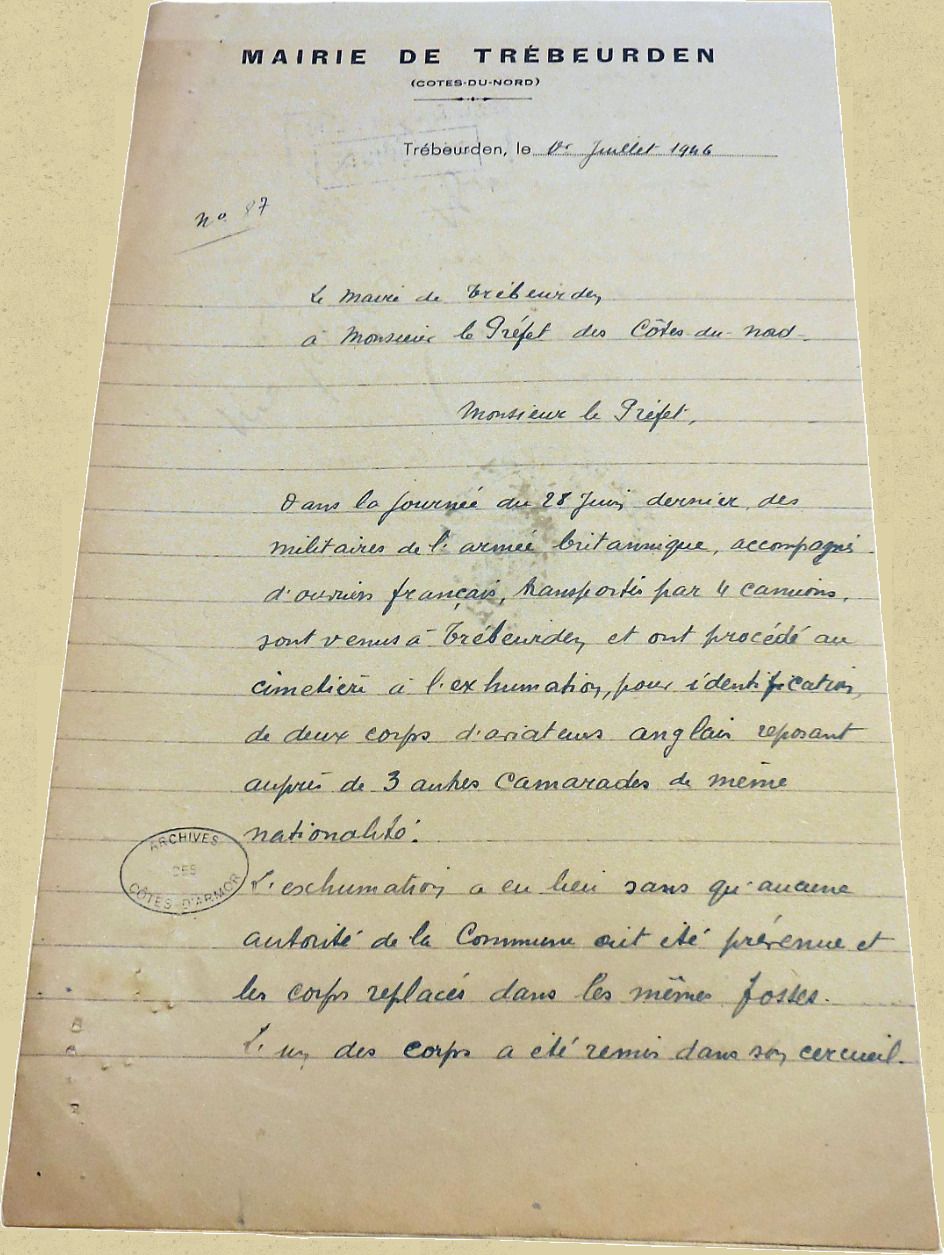 MAIRIE DE TRÉBEURDEN
(COTES-DU-NORD)
Trébeurden, le 1er Juillet 1946
n° 87
Le Maire de Trébeurden
à Monsieur le Préfet des Côtes-du-Nord.
Monsieur le Préfet,
Dans la journée du 28 Juin dernier, des
militaires de l'armée britannique, accompagnés
d'ouvriers français, transportés par 4 camions,
sont venus à Trébeurden et ont procédé au
cimetière à l'exhumation, pour identification,
de deux corps d'aviateurs anglais reposant
auprès de 3 autres camarades de même
nationalité.
ARCHIVES
DES
CÔTES D'ARMOR
L'exhumation a eu lieu sans qu'aucune
autorité de la Commune ait été prévenue et
les corps replacés dans les mêmes fosses.
L'un des corps a été remis dans son cercueil.